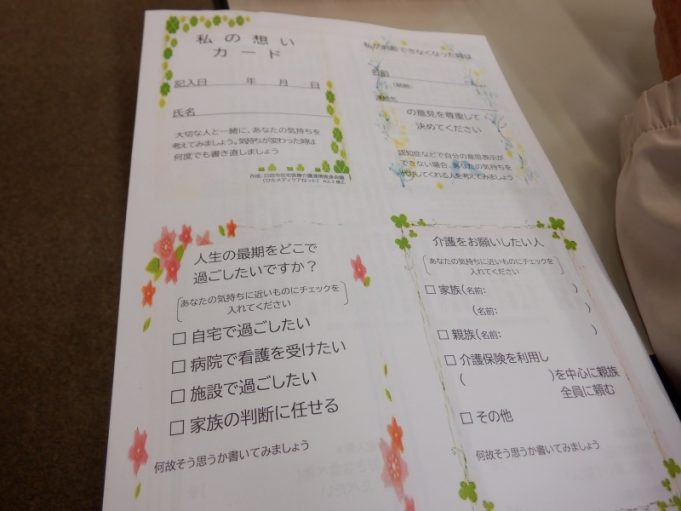 私の想い
カード
記入日 年 月 日
氏名
大切な人と一緒に、あなたの気持ちを
考えてみましょう。気持ちが変わった時は
何度でも書き直しましょう
私が判断できなくなった時は
名前
連絡先
の意見を尊重して
決めてください
認知症などで自分の意思表示が
できない場合、あなたの気持ちを
代弁してくれる人を考えてみましょう
人生の最期をどこで
過ごしたいですか？
(あなたの気持ちに近いものにチェックを
入れてください)
□ 自宅で過ごしたい
□ 病院で看護を受けたい
□ 施設で過ごしたい
□ 家族の判断に任せる
何故そう思うか書いてみましょう
介護をお願いしたい人
(あなたの気持ちに近いものにチェックを
入れてください)
□ 家族(名前: )
(名前: )
□ 親族(名前: )
□ 介護保険を利用し
( )を中心に親族
全員に頼む
□ その他
何故そう思うか書いてみましょう